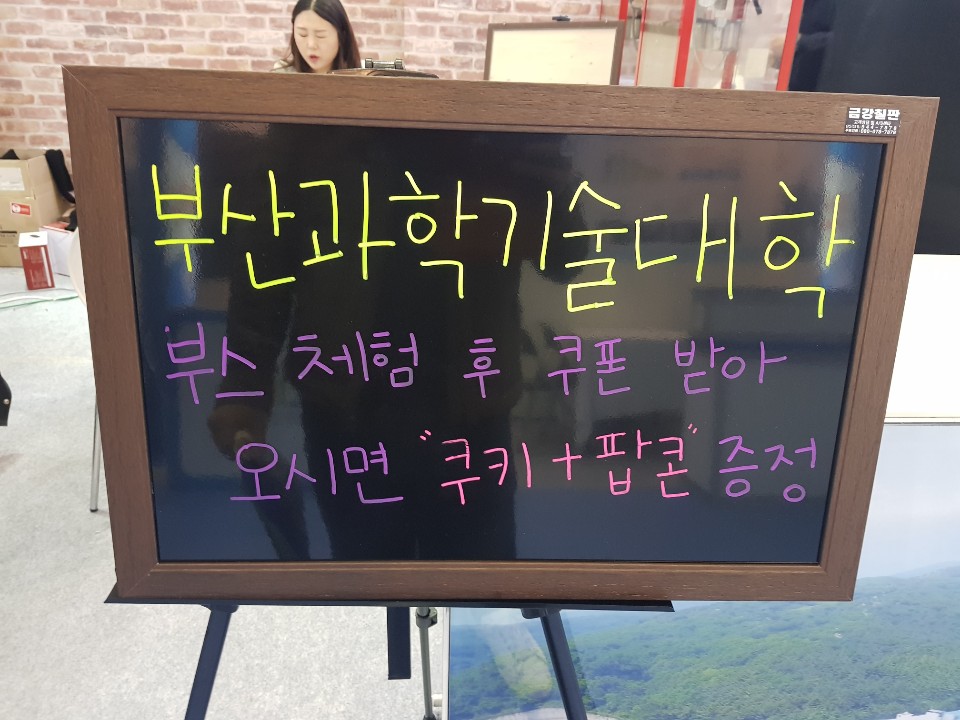 금강칠판
부산과학기술대학
부스 체험 후 쿠폰 받아
오시면 "쿠키 + 팝콘" 증정